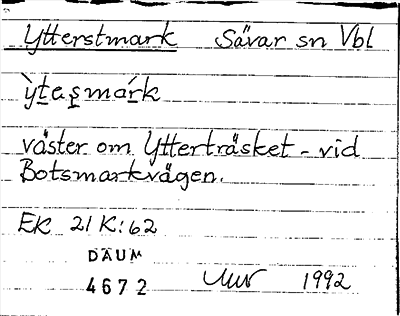 Ytterstmark Sävar sn Vbl
ỳtaşmárk
väster om Ytterträsket - vid
Botsmarkvägen.
EK 21 K:62
DAUM
4672 1992